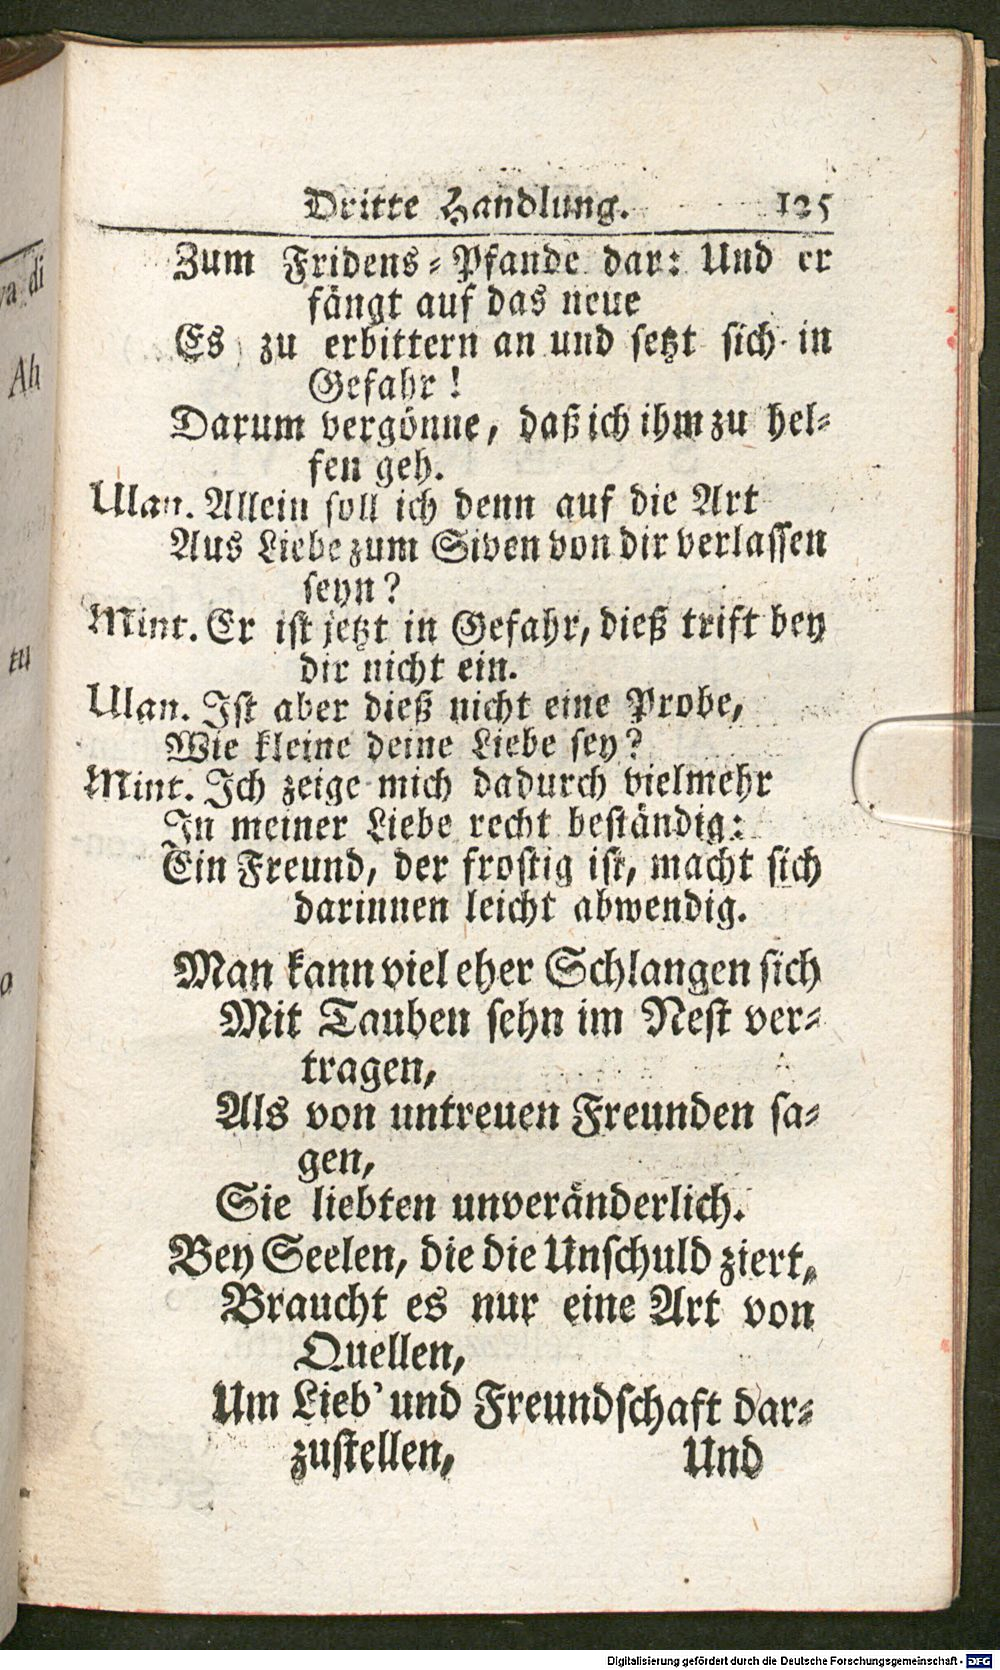 Dritte Handlung. 125
Zum Fridens-Pfande dar: Und er
fängt auf das neue
Es zu erbittern an und setzt sich in
Gefahr!
Darum vergönne, daß ich ihm zu hel-
fen geh.
Ulan. Allein soll ich denn auf die Art
Aus Liebe zum Siven von dir verlassen
seyn?
Mint. Er ist jetzt in Gefahr, dieß trift bey
dir nicht ein.
Ulan. Ist aber dieß nicht eine Probe,
Wie kleine deine Liebe sey?
Mint. Ich zeige mich dadurch vielmehr
In meiner Liebe recht beständig:
Ein Freund, der frostig ist, macht sich
darinnen leicht abwendig.
Man kann viel eher Schlangen sich
Mit Tauben sehn im Nest ver-
tragen,
Als von untreuen Freunden sa-
gen,
Sie liebten unveränderlich.
Bey Seelen, die die Unschuld ziert,
Braucht es nur eine Art von
Quellen,
Um Lieb' und Freundschaft dar-
zustellen,
Und
di
Ah
tu
Digitalisierung gefördert durch die Deutsche Forschungsgemeinschaft - DFG